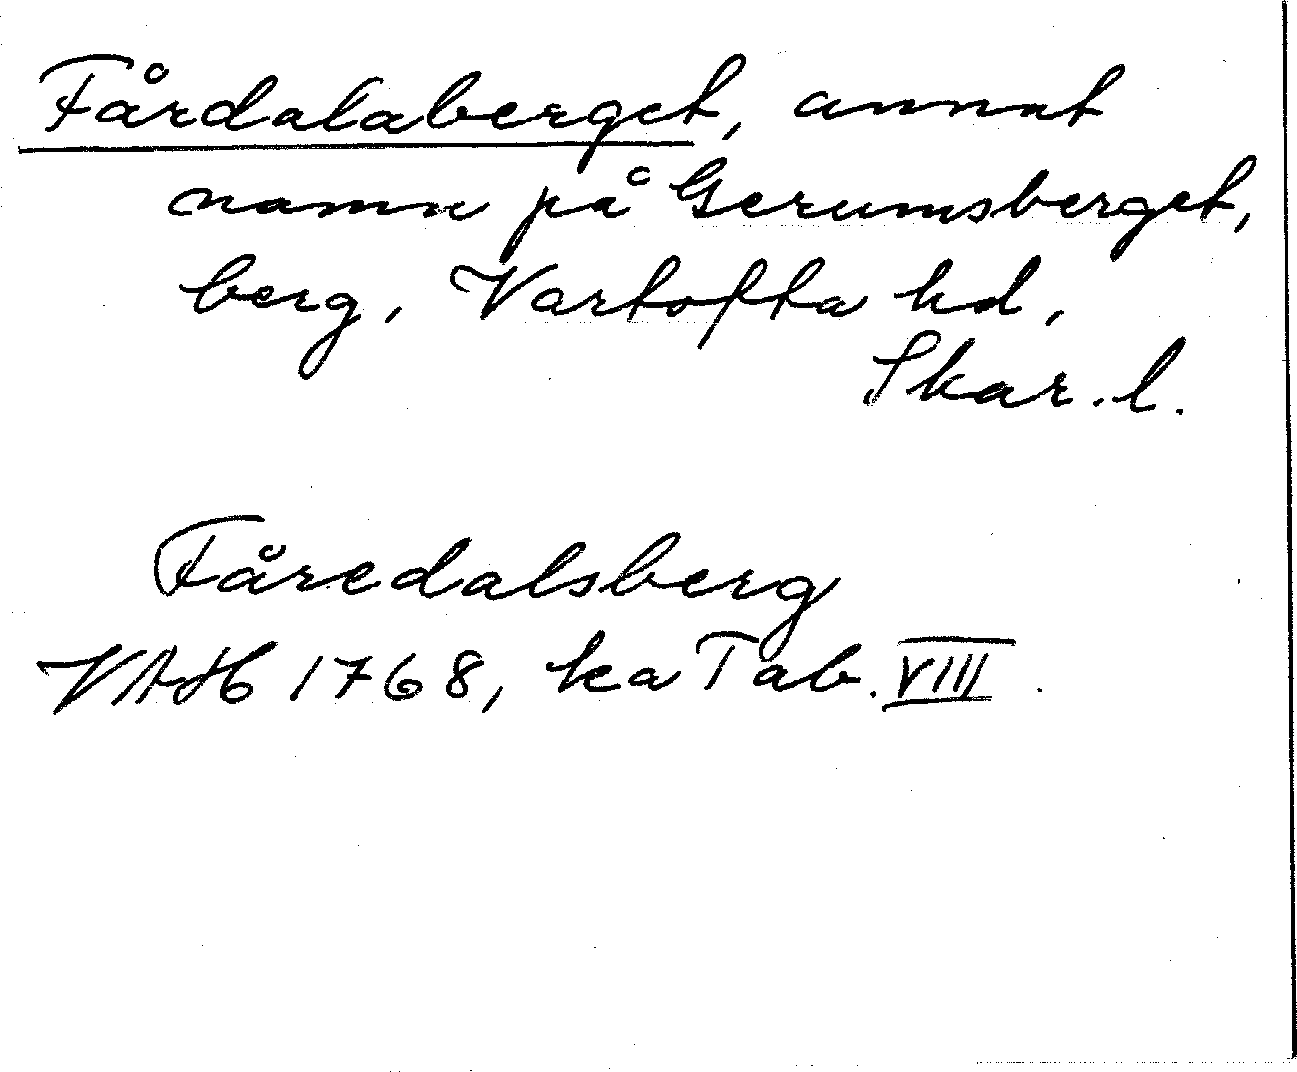 Fårdalaberget, annat
namn på Gerumsberget,
berg, Vartofta hd,
Skar. l.
Fåredalsberg
VAH 1768, ka Tab. VIII.